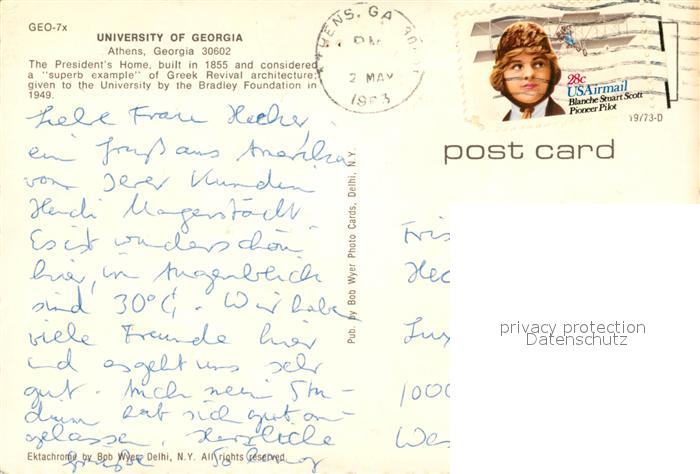 GEO-7x
UNIVERSITY OF GEORGIA
Athens, Georgia 30602
The President's Home, built in 1855 and considered
a "superb example" of Greek Revival architecture;
given to the University by the Bradley Foundation in
1949.
Liebe Frau Hecher,
ein Gruß aus Amerika
von Ihrer Kundin
Heidi
Es ist wunderschön
hier, im Augenblick
sind 30°C. Wir haben
viele Freunde hier
und es geht uns sehr
gut. Auch mein Stu-
dium hat sich gut an-
gelassen. Herzliche
Grüße
Ektachrome by Bob Wyer, Delhi, N.Y. All rights reserved.
Pub. by Bob Wyer Photo Cards, Delhi, N.Y.
ATHENS, GA
PM
2 MAY
1983
28c
USAirmail
Blanche Stuart Scott
Pioneer Pilot
19/73-D
post card
Fris
Hec
1000
Wes
privacy protection
Datenschutz